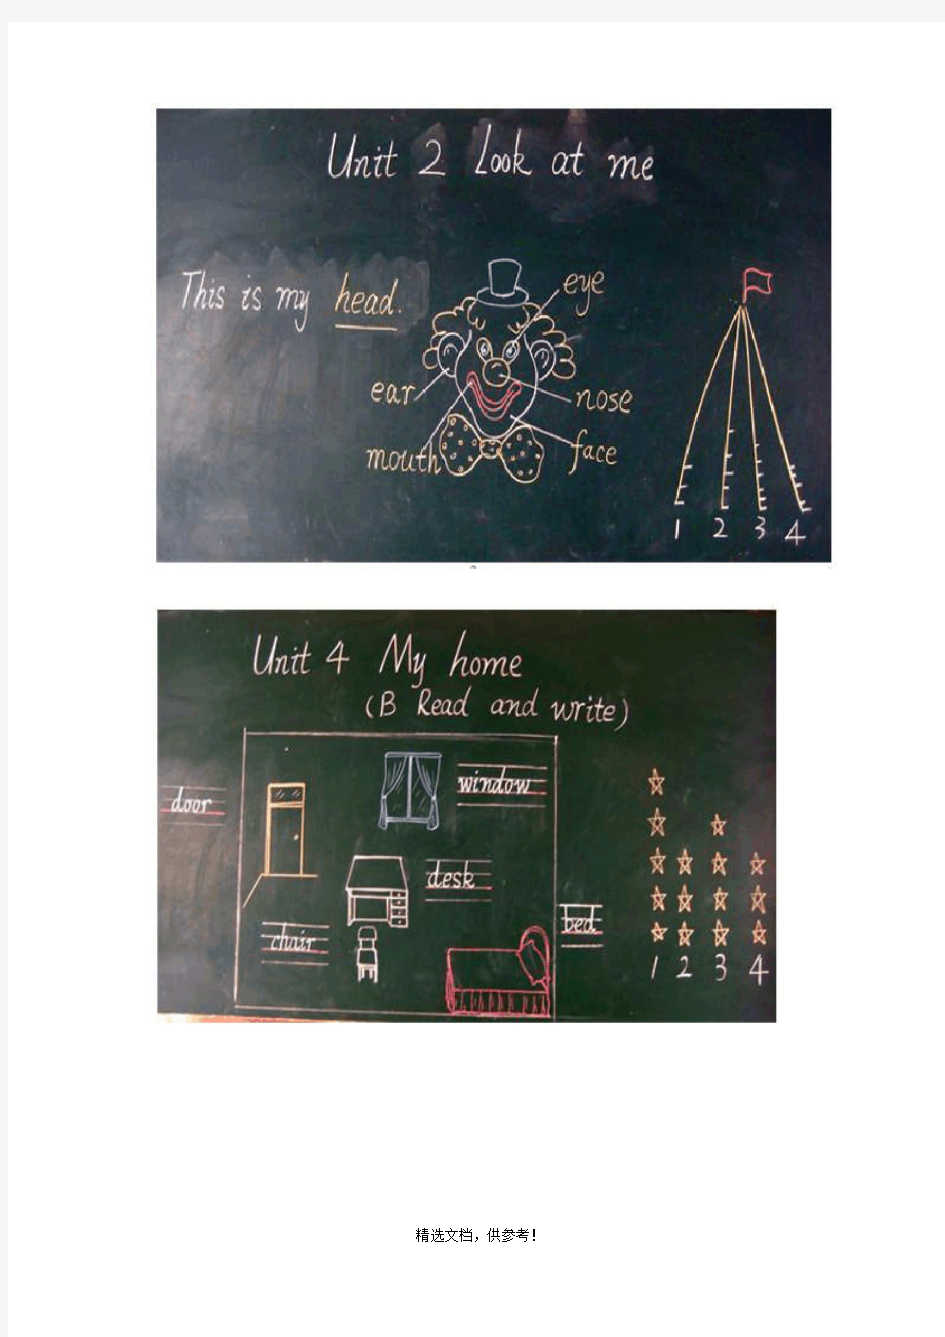 Unit 2 Look at me
This is my head.
eye
ear
nose
mouth
face
1 2 3 4
Unit 4 My home
(B Read and write)
window
door
desk
chair
bed
1 2 3 4
精选文档，供参考！